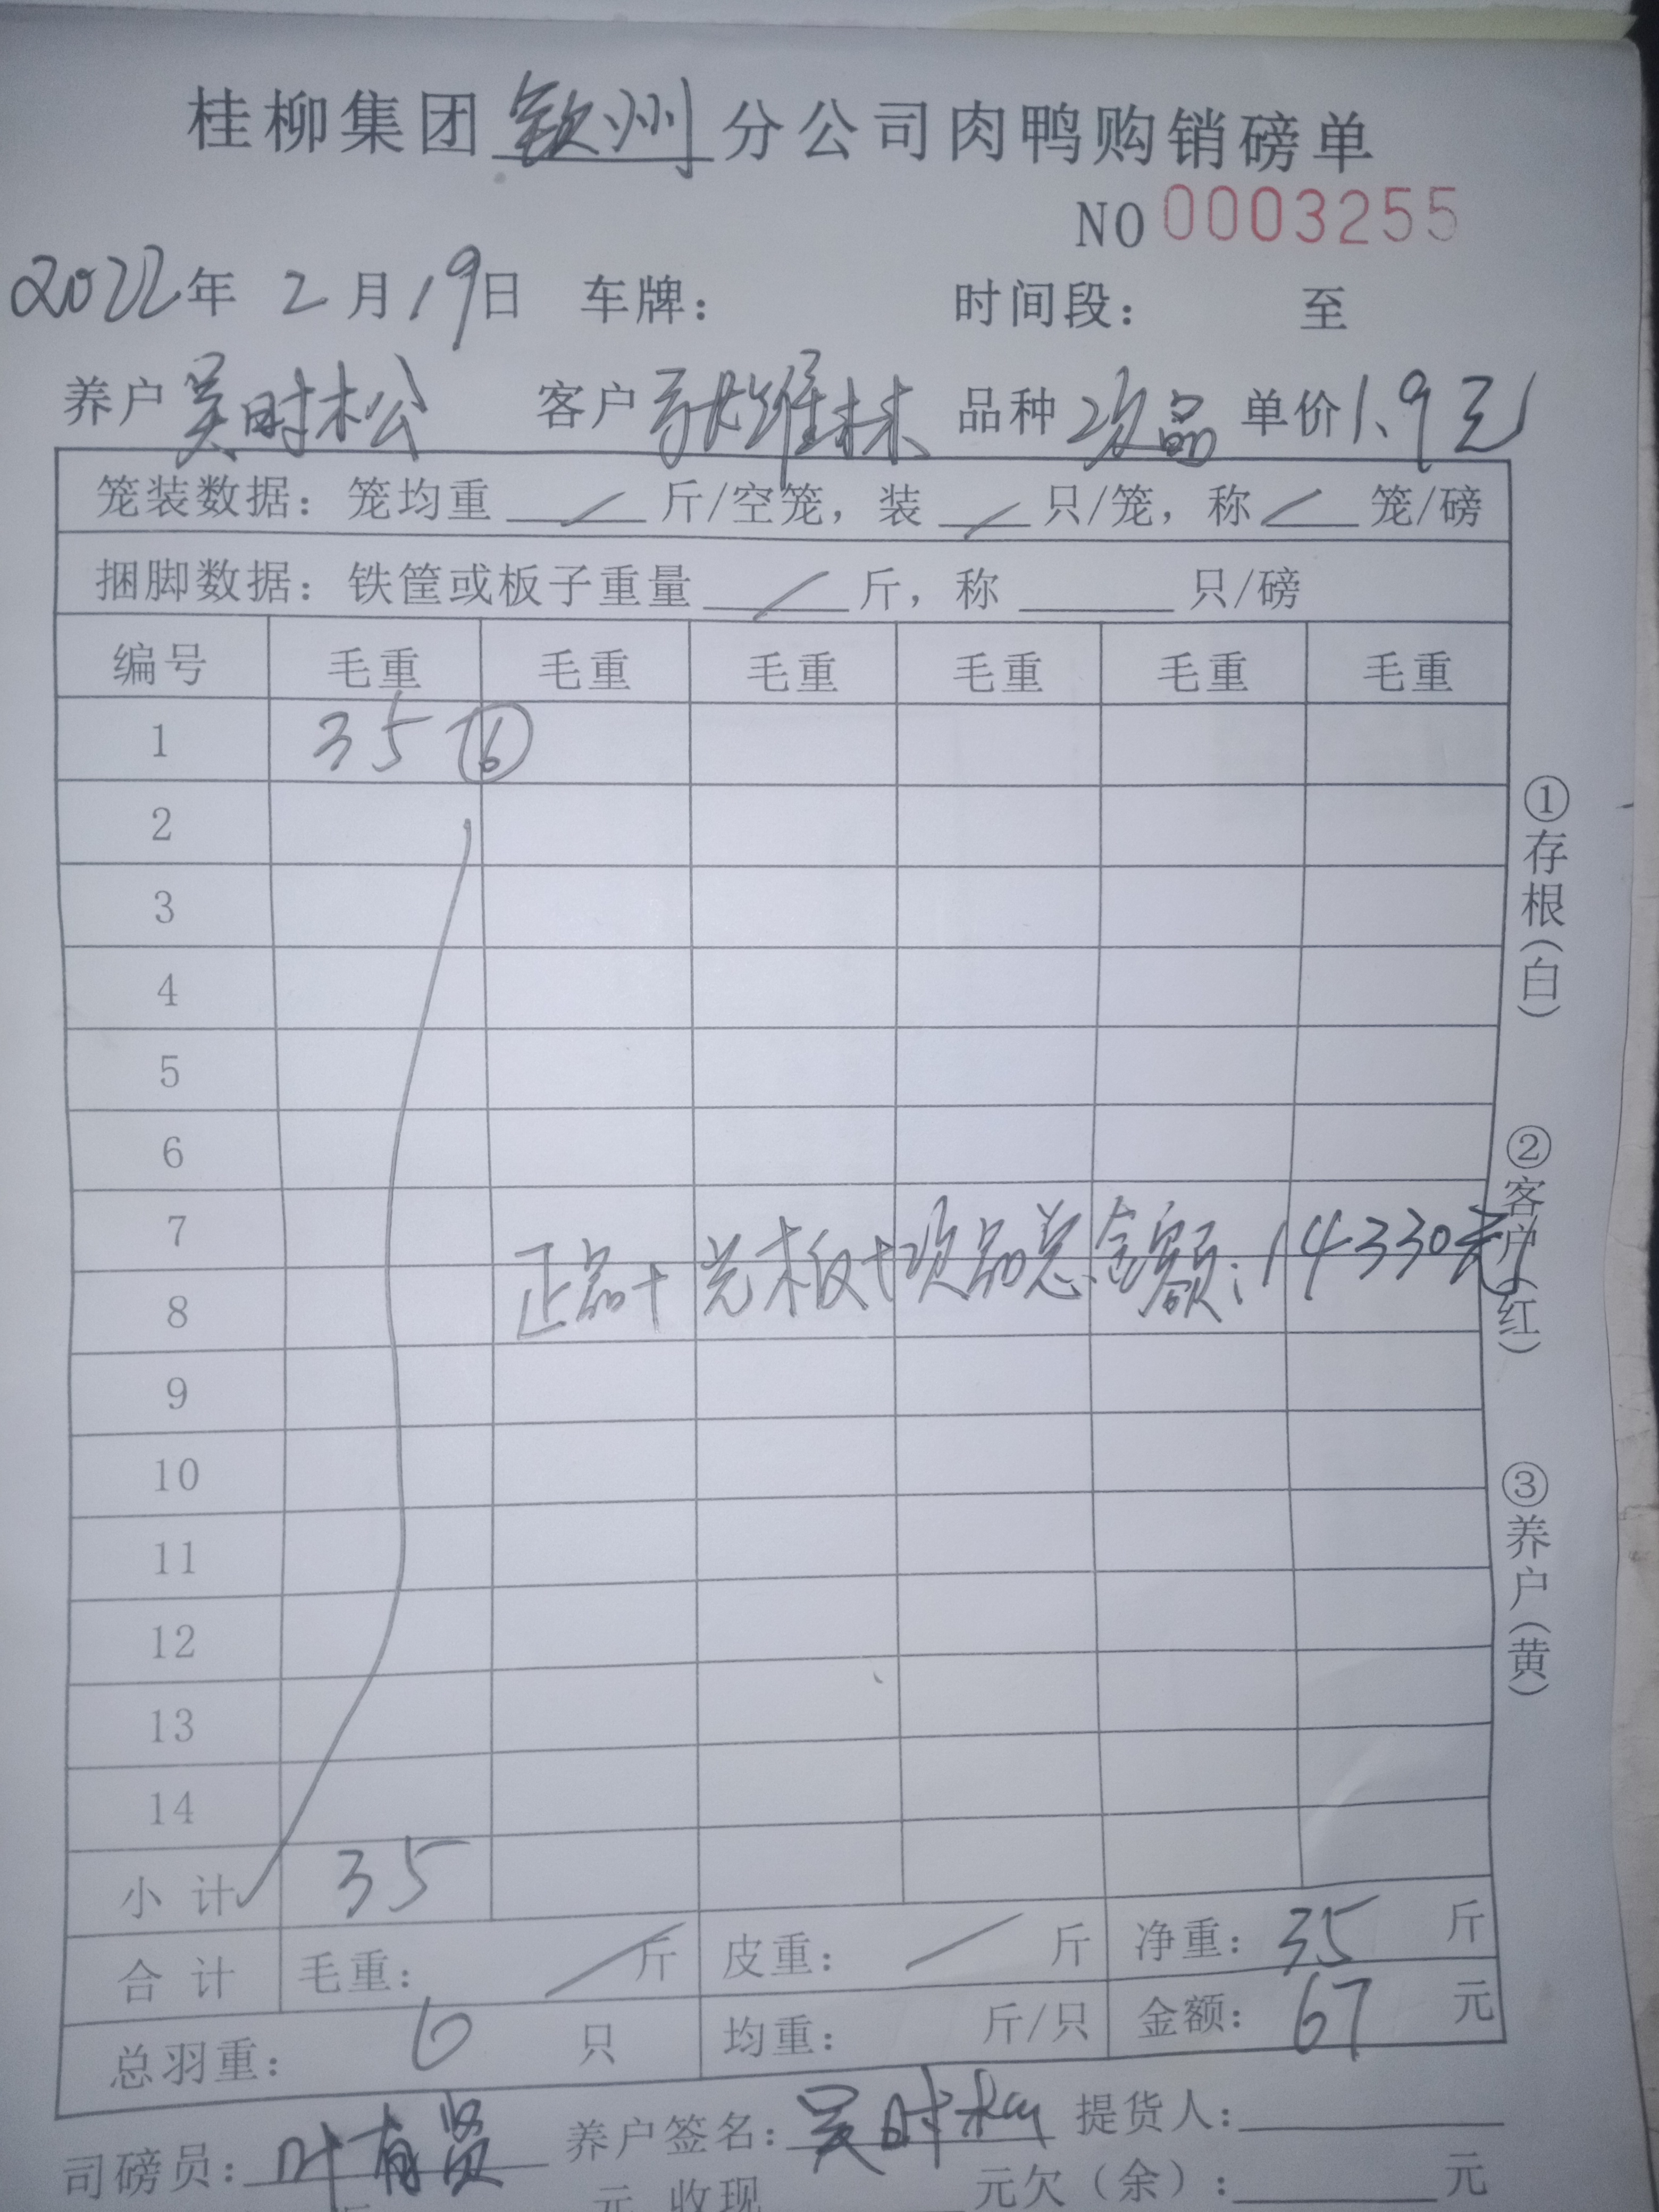 桂柳集团钦州分公司肉鸭购销磅单
NO 0003255
2022年 2月19日 车牌： 时间段： 至
养户 吴时松 客户 雄林 品种 次品 单价 1.9元
笼装数据：笼均重 / 斤/空笼，装 / 只/笼，称 / 笼/磅
捆脚数据：铁筐或板子重量 / 斤，称 只/磅
编号 毛重 毛重 毛重 毛重 毛重 毛重
1 35 ⑥
2
3
4
5
6
7
正品+光板+次品总金额：14330元
8
9
10
11
12
13
14
小计 35
合计 毛重： / 斤 皮重： / 斤 净重：35 斤
总羽重： 6 只 均重： 斤/只 金额：67 元
司磅员：叶有贤 养户签名：吴时松 提货人：
元 收现 元欠（余）： 元
①存根（白）
②客户（红）
③养户（黄）